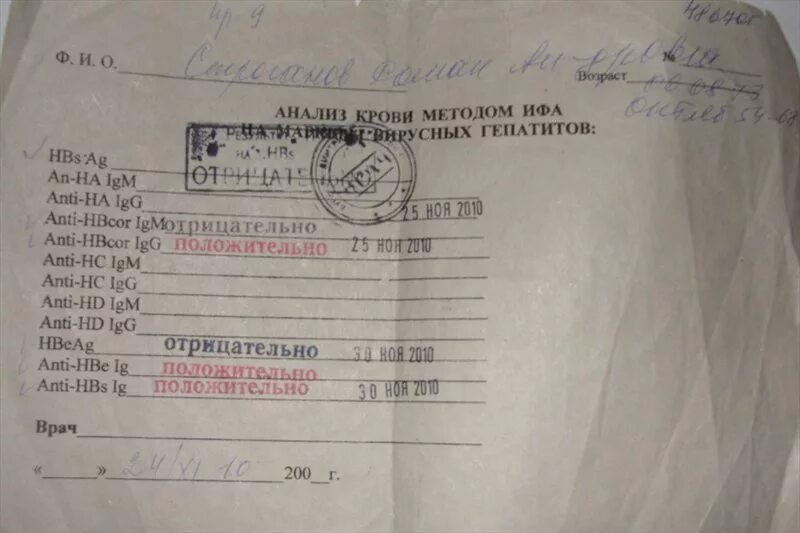 пр 9
486705
Ф. И. О. Строганов Роман
№
Возраст 06.08.73
54-68
АНАЛИЗ КРОВИ МЕТОДОМ ИФА
НА МАРКЕРЫ ВИРУСНЫХ ГЕПАТИТОВ:
Результ
НА HBs
ОТРИЦАТЕ
ВРАЧ
HBs Ag
An-HA IgM
Anti-HA IgG 25 НОЯ 2010
Anti-HBcor IgM отрицательно
Anti-HBcor IgG положительно 25 НОЯ 2010
Anti-HC IgM
Anti-HC IgG
Anti-HD IgM
Anti-HD IgG
HBeAg отрицательно 30 НОЯ 2010
Anti-HBe Ig положительно
Anti-HBs Ig положительно 30 НОЯ 2010
Врач
« » 24/XI 10 200 г.